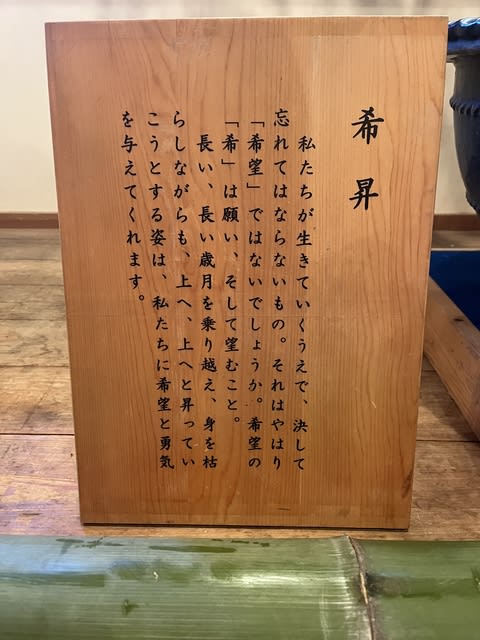 希昇
私たちが生きていくうえで、決して
忘れてはならないもの。それはやはり
「希望」ではないでしょうか。希望の
「希」は願い、そして望むこと。
長い、長い歳月を乗り越え、身を枯
らしながらも、上へ、上へと昇ってい
こうとする姿は、私たちに希望と勇気
を与えてくれます。